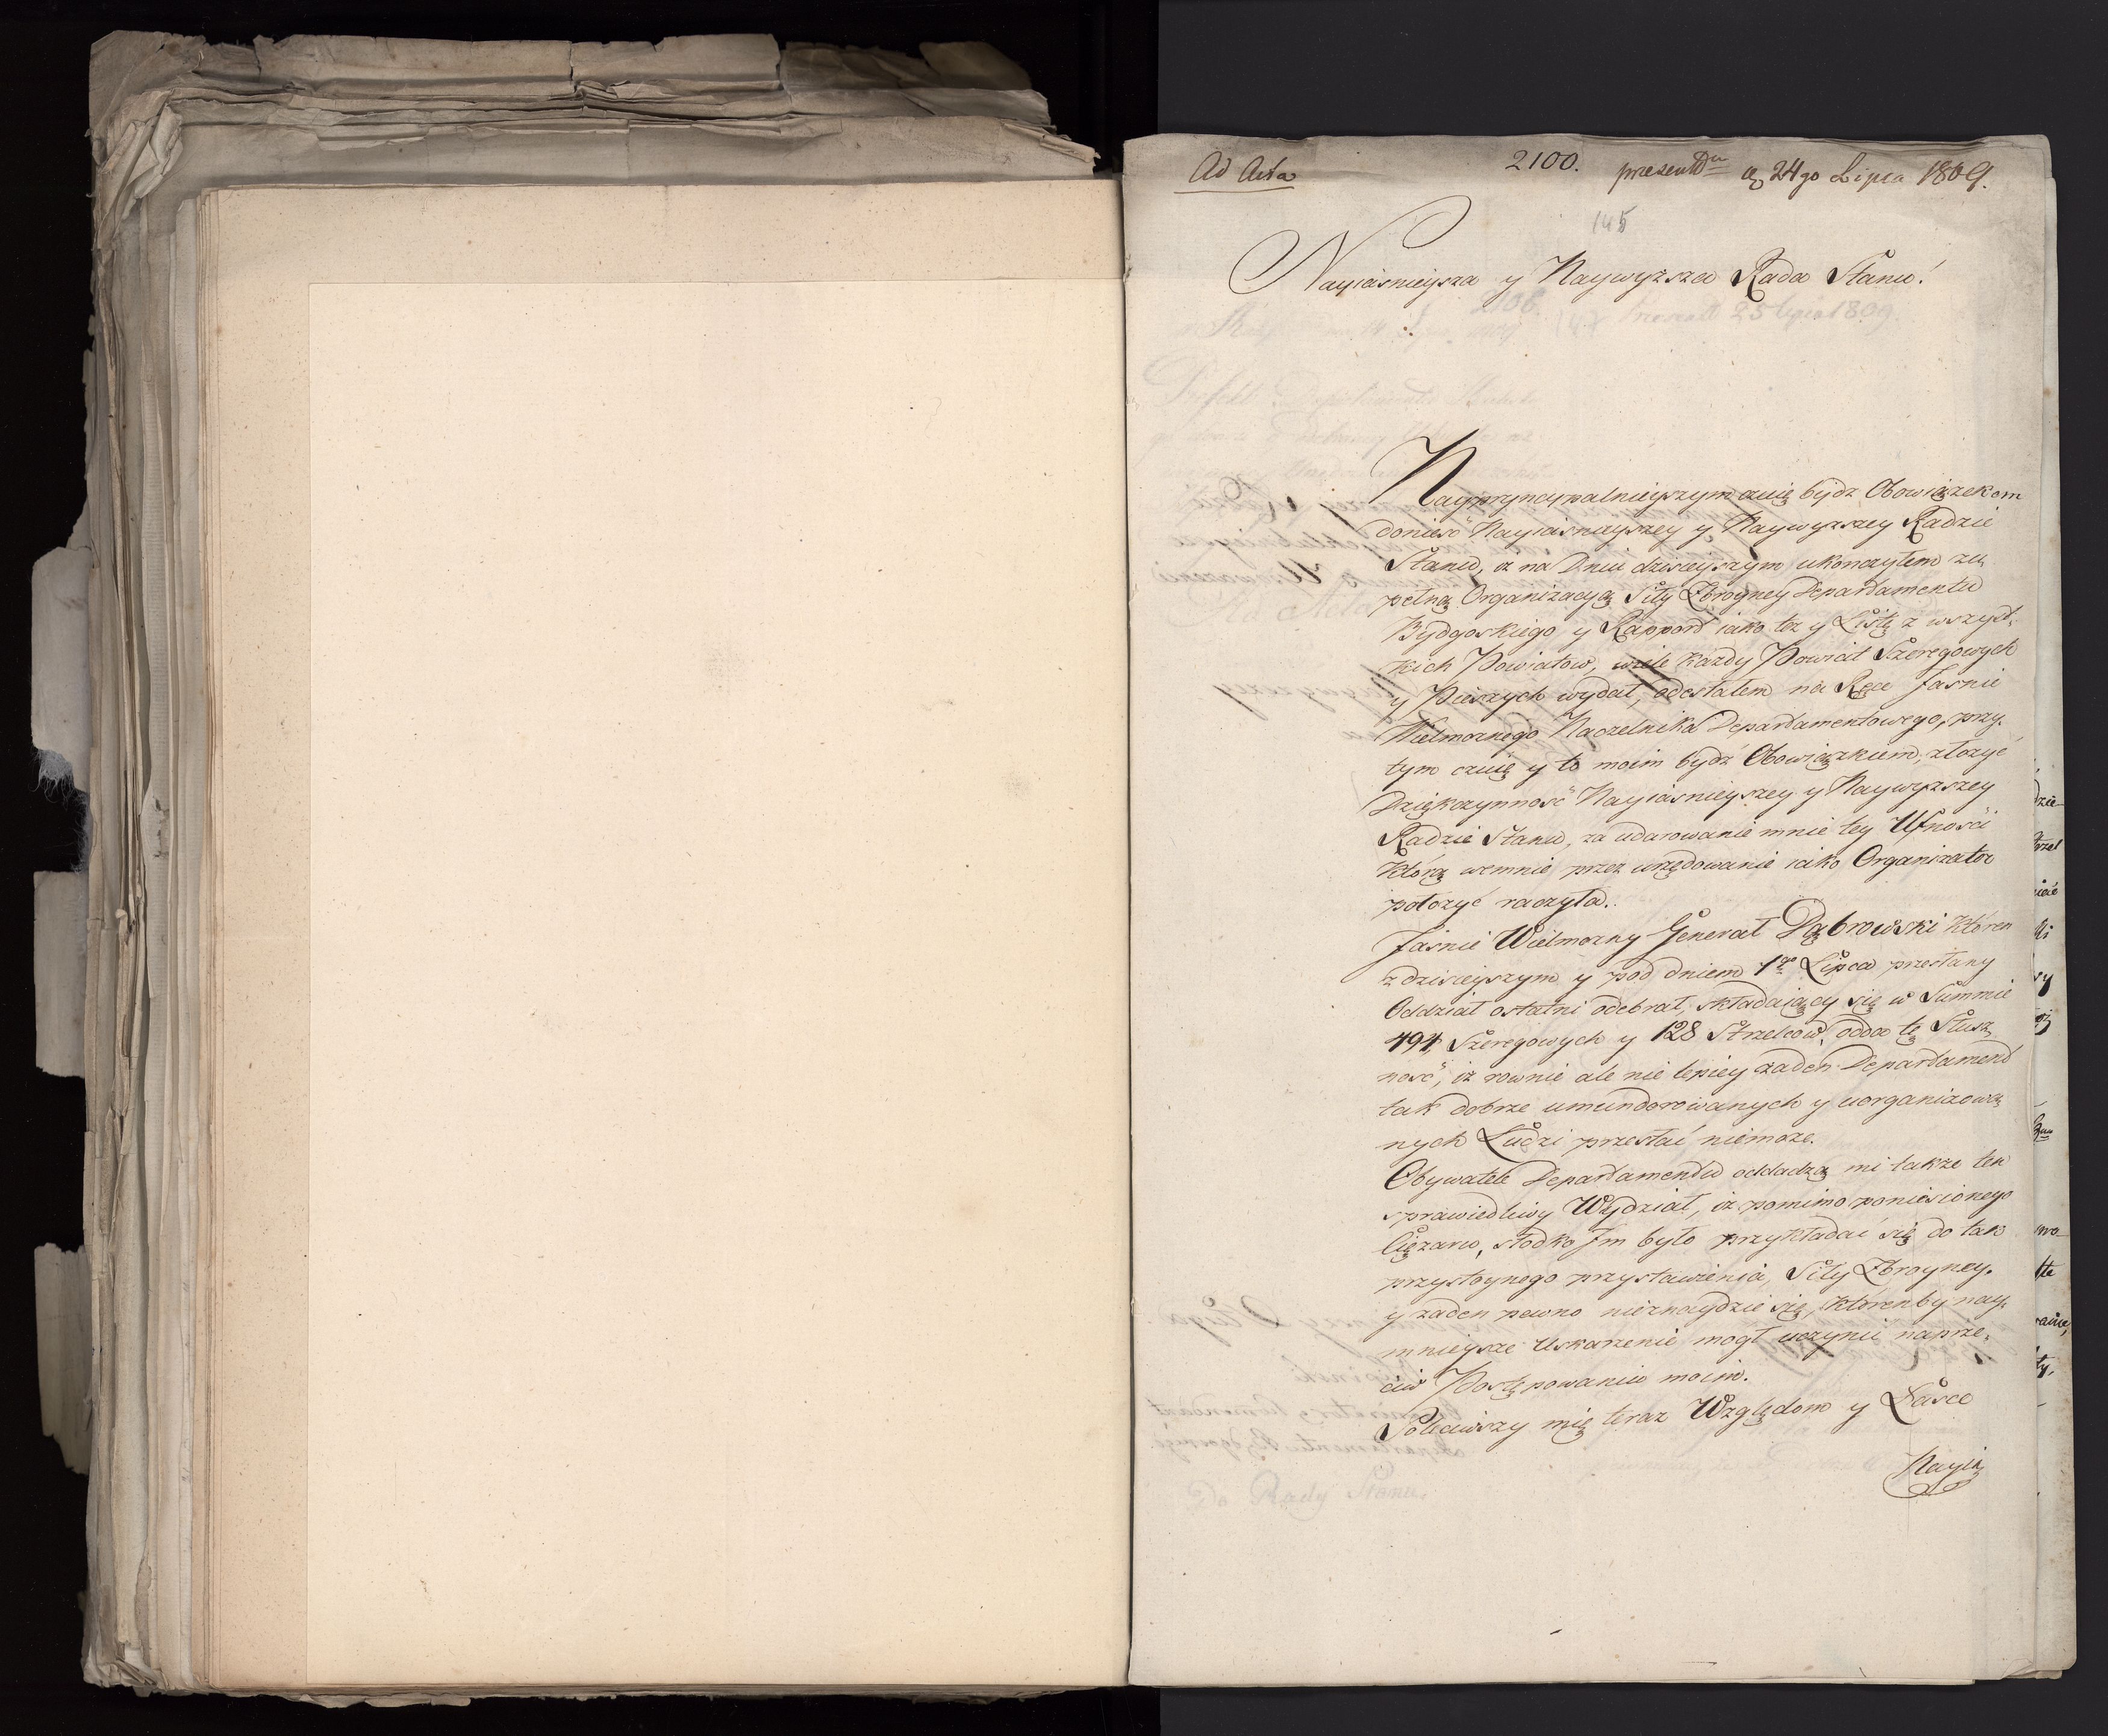 Ad Acta
2100.
presentt d 24go Lipca 1809.
145
Nayiasnieysza y Naywyższa Rada Stanu!
Naypryncypalnieyszym czuię bydź Obowiązekom
donieść Nayiasnieyszey y Naywyzszey Radzie
Stanu, iż na Dniu dzisieyszym ukończyłem zu,
pełną Organizacyą Siły Zbroyney Departamentu
Bydgoskiego y Rapport iako też y Listę z wszyst,
kich Powiatow, wiele każdy Powiat Szeregowych
y Pieszych wydał, odesłałem na Ręce Jaśnie
Wielmoznego Naczelnika Departamentowego, przy,
tym czuię y to moim bydź Obowiązkiem, złożyć
Dziękczynność Nayiasnieyszey y Naywyzszey
Radzie Stanu, za udarowanie mnie tey Ufności
którą wemnie przez urzędowanie iako Organizator
położyć raczyła.
Jaśnie Wielmozny Generał Dąbrowski któren
z dzisieyszym y pod dniem 1go Lipca przesłany
Oddział ostatni odebrał, składaiący się w Summie
494 Szeregowych y 128 Strzelców, odda tę Słusz,
ność, iż rownie ale nie lepiey żaden Departament
tak dobrze umundorowanych y uorganizowa,
nych Ludzi przesłać niemoże.
Obywatele Departamentu oddadzą mi także ten
sprawiedliwy Wydział, iż pomimo poniesionego
Ciężaru, słodko Im było przykładać się do tak
przystoynego przystawienia, Siły Zbroyney.
y żaden pewno nieznaydzie się, któren by nay,
mnieysze Uskarżenie mogł uczynić naprze,
ciw Postępowaniu moim.
Poleciwszy mię teraz Względom y Łasce
Nayia,